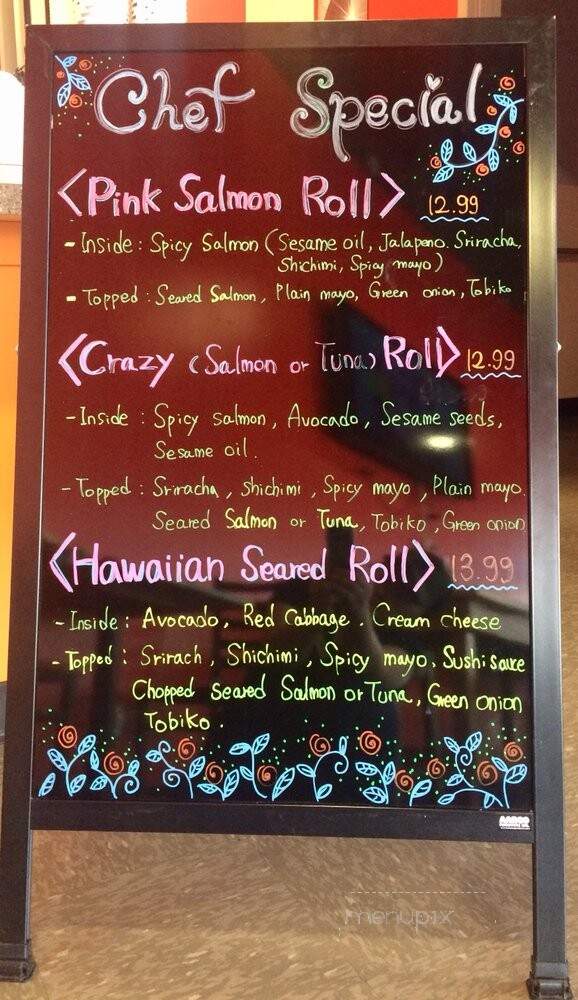 Chef Special
<Pink Salmon Roll> 12.99
- Inside : Spicy Salmon (Sesame oil, Jalapeno. Sriracha,
Shichimi, Spicy mayo)
- Topped : Seared Salmon, Plain mayo, Green onion, Tobiko
<Crazy (Salmon or Tuna) Roll> 12.99
- Inside : Spicy salmon, Avocado, Sesame seeds,
Sesame oil.
- Topped : Sriracha, Shichimi, Spicy mayo, Plain mayo.
Seared Salmon or Tuna, Tobiko, Green onion
<Hawaiian Seared Roll> 13.99
- Inside : Avocado, Red Cabbage. Cream cheese
- Topped : Srirach, Shichimi, Spicy mayo, Sushi sauce
Chopped seared Salmon or Tuna, Green onion
Tobiko.
menupix